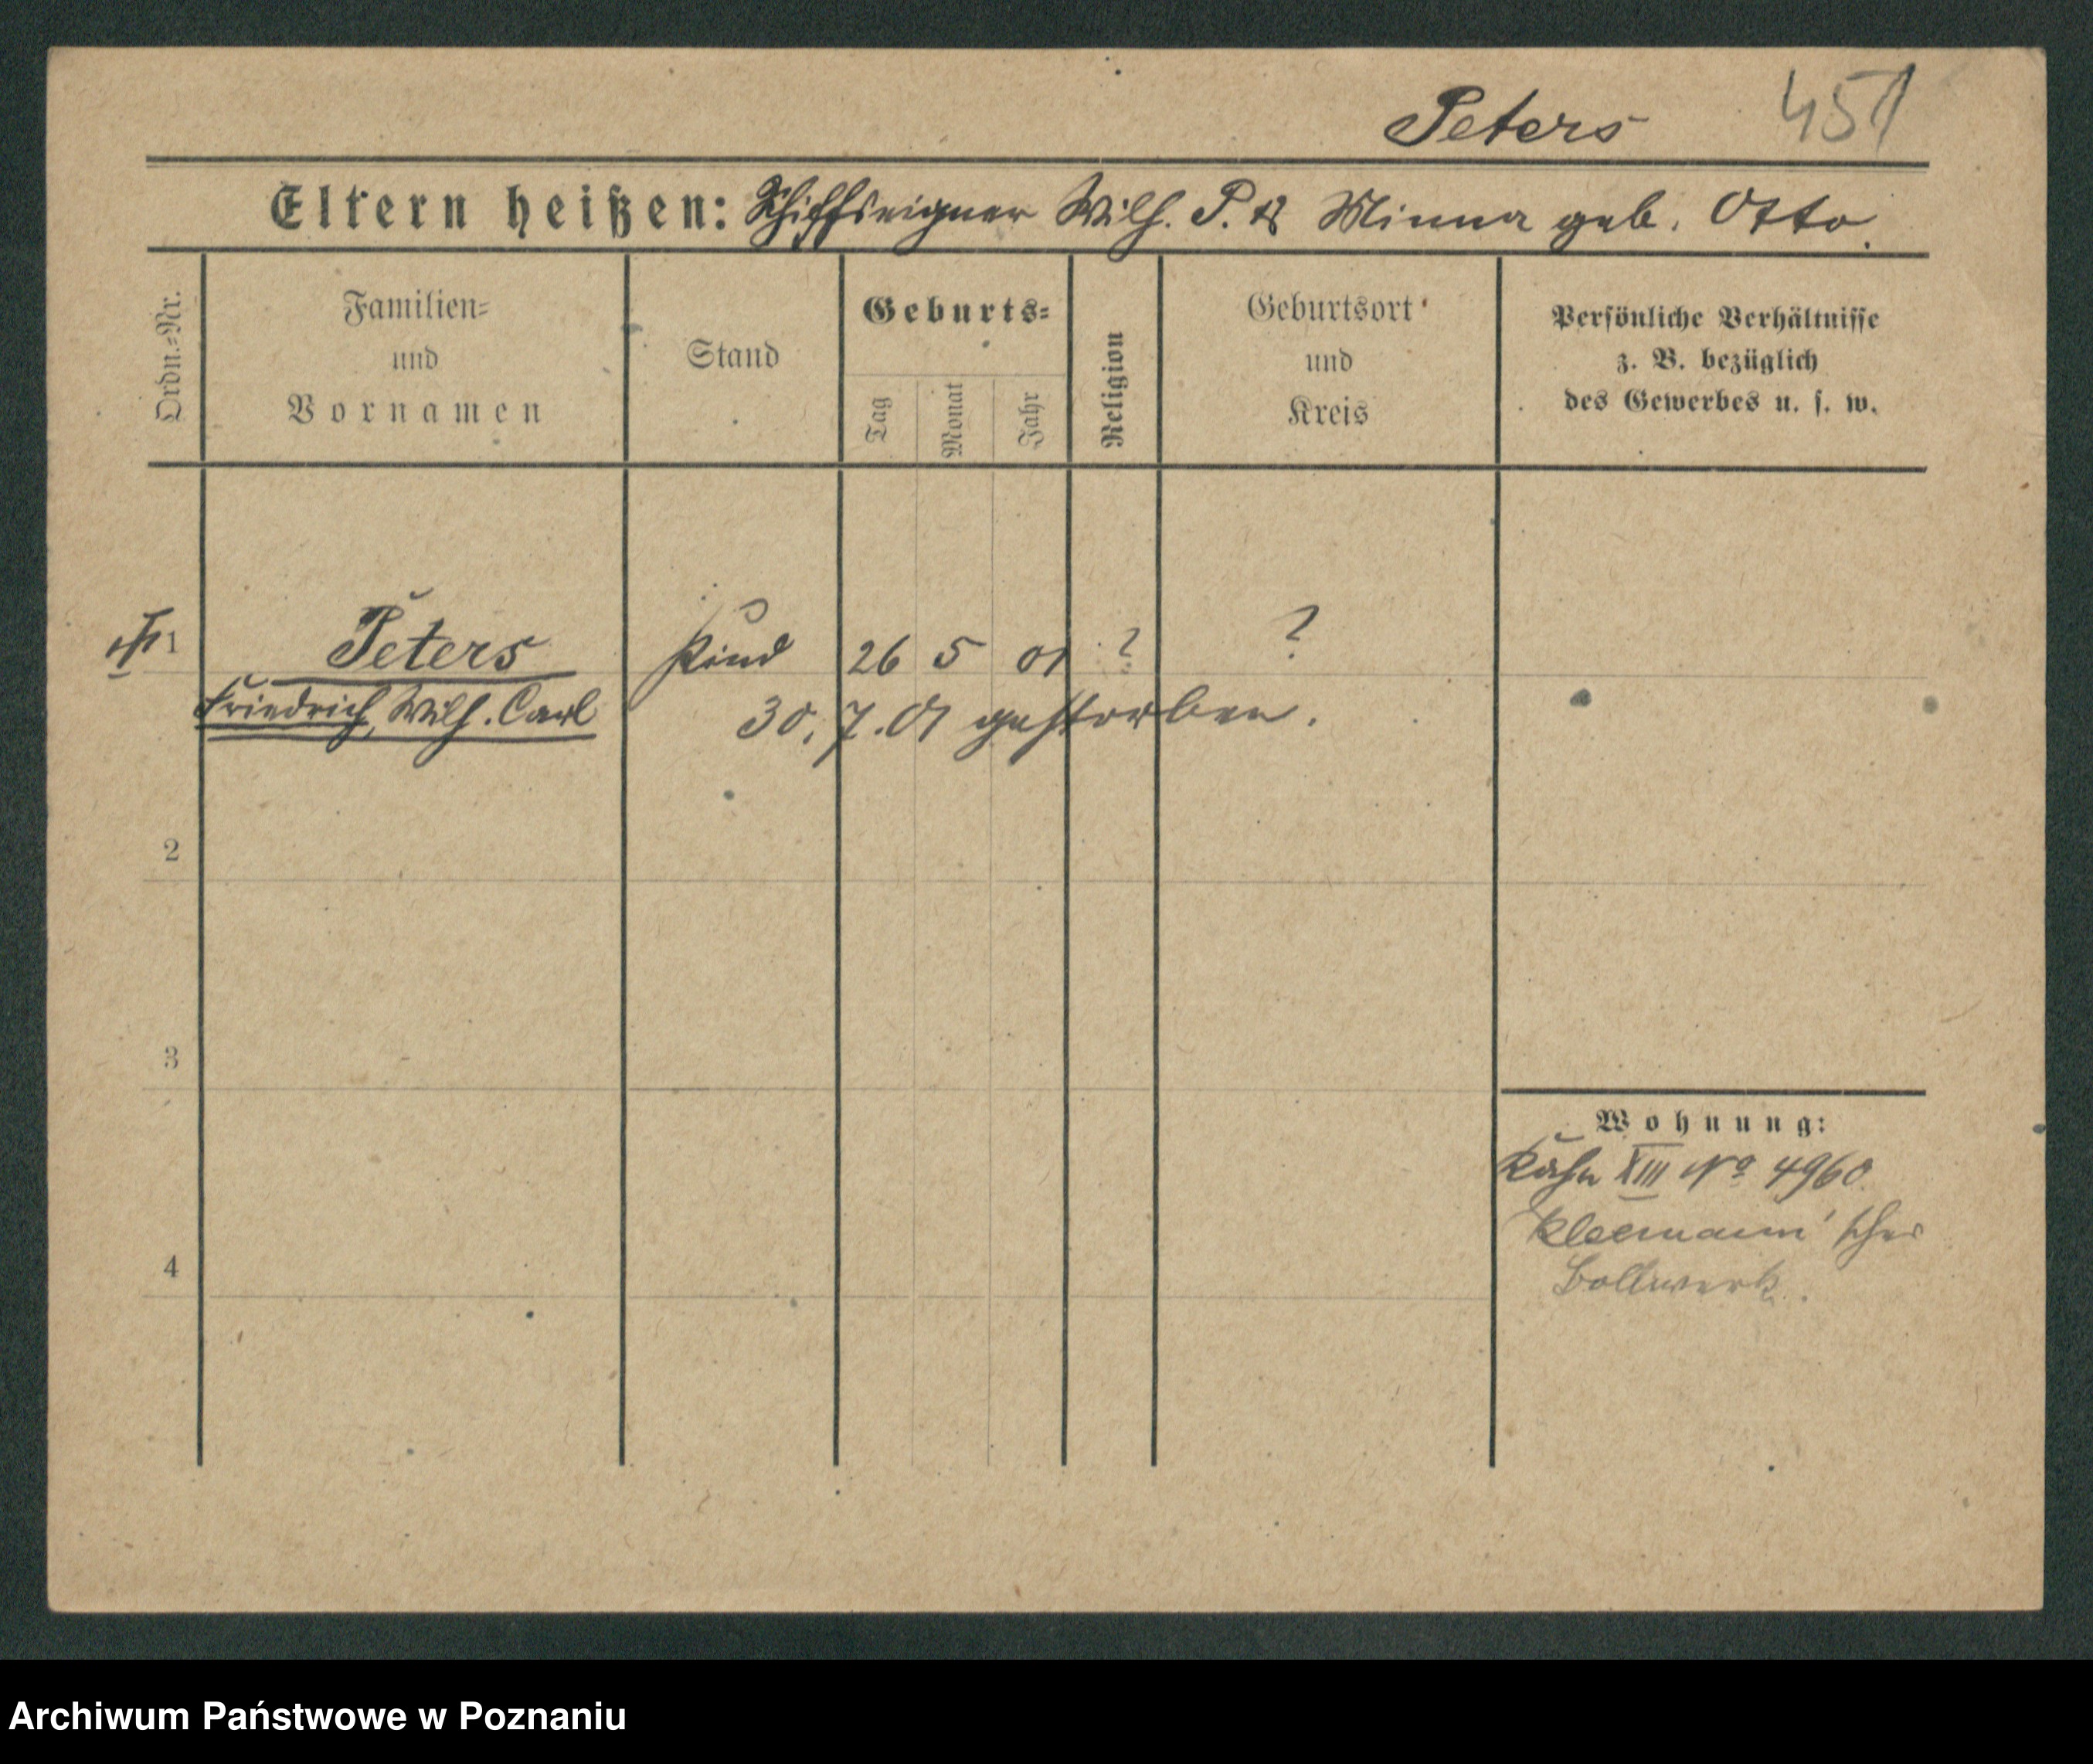 Peters 451
Eltern heißen: Schiffseigner Wilh. P. & Minna geb. Otto.
Ordn.-Nr.
Familien-
und
Vornamen
Stand
Geburts-
Tag
Monat
Jahr
Religion
Geburtsort
und
Kreis
Persönliche Verhältnisse
z. B. bezüglich
des Gewerbes u. s. w.
1 Peters Kind 26 5 01 ? ?
Friedrich, Wilh. Carl 30.7.01 gestorben.
2
3
Wohnung:
Kahn XIII No 4960.
Kleemann'sches
Bollwerk.
4
Archiwum Państwowe w Poznaniu